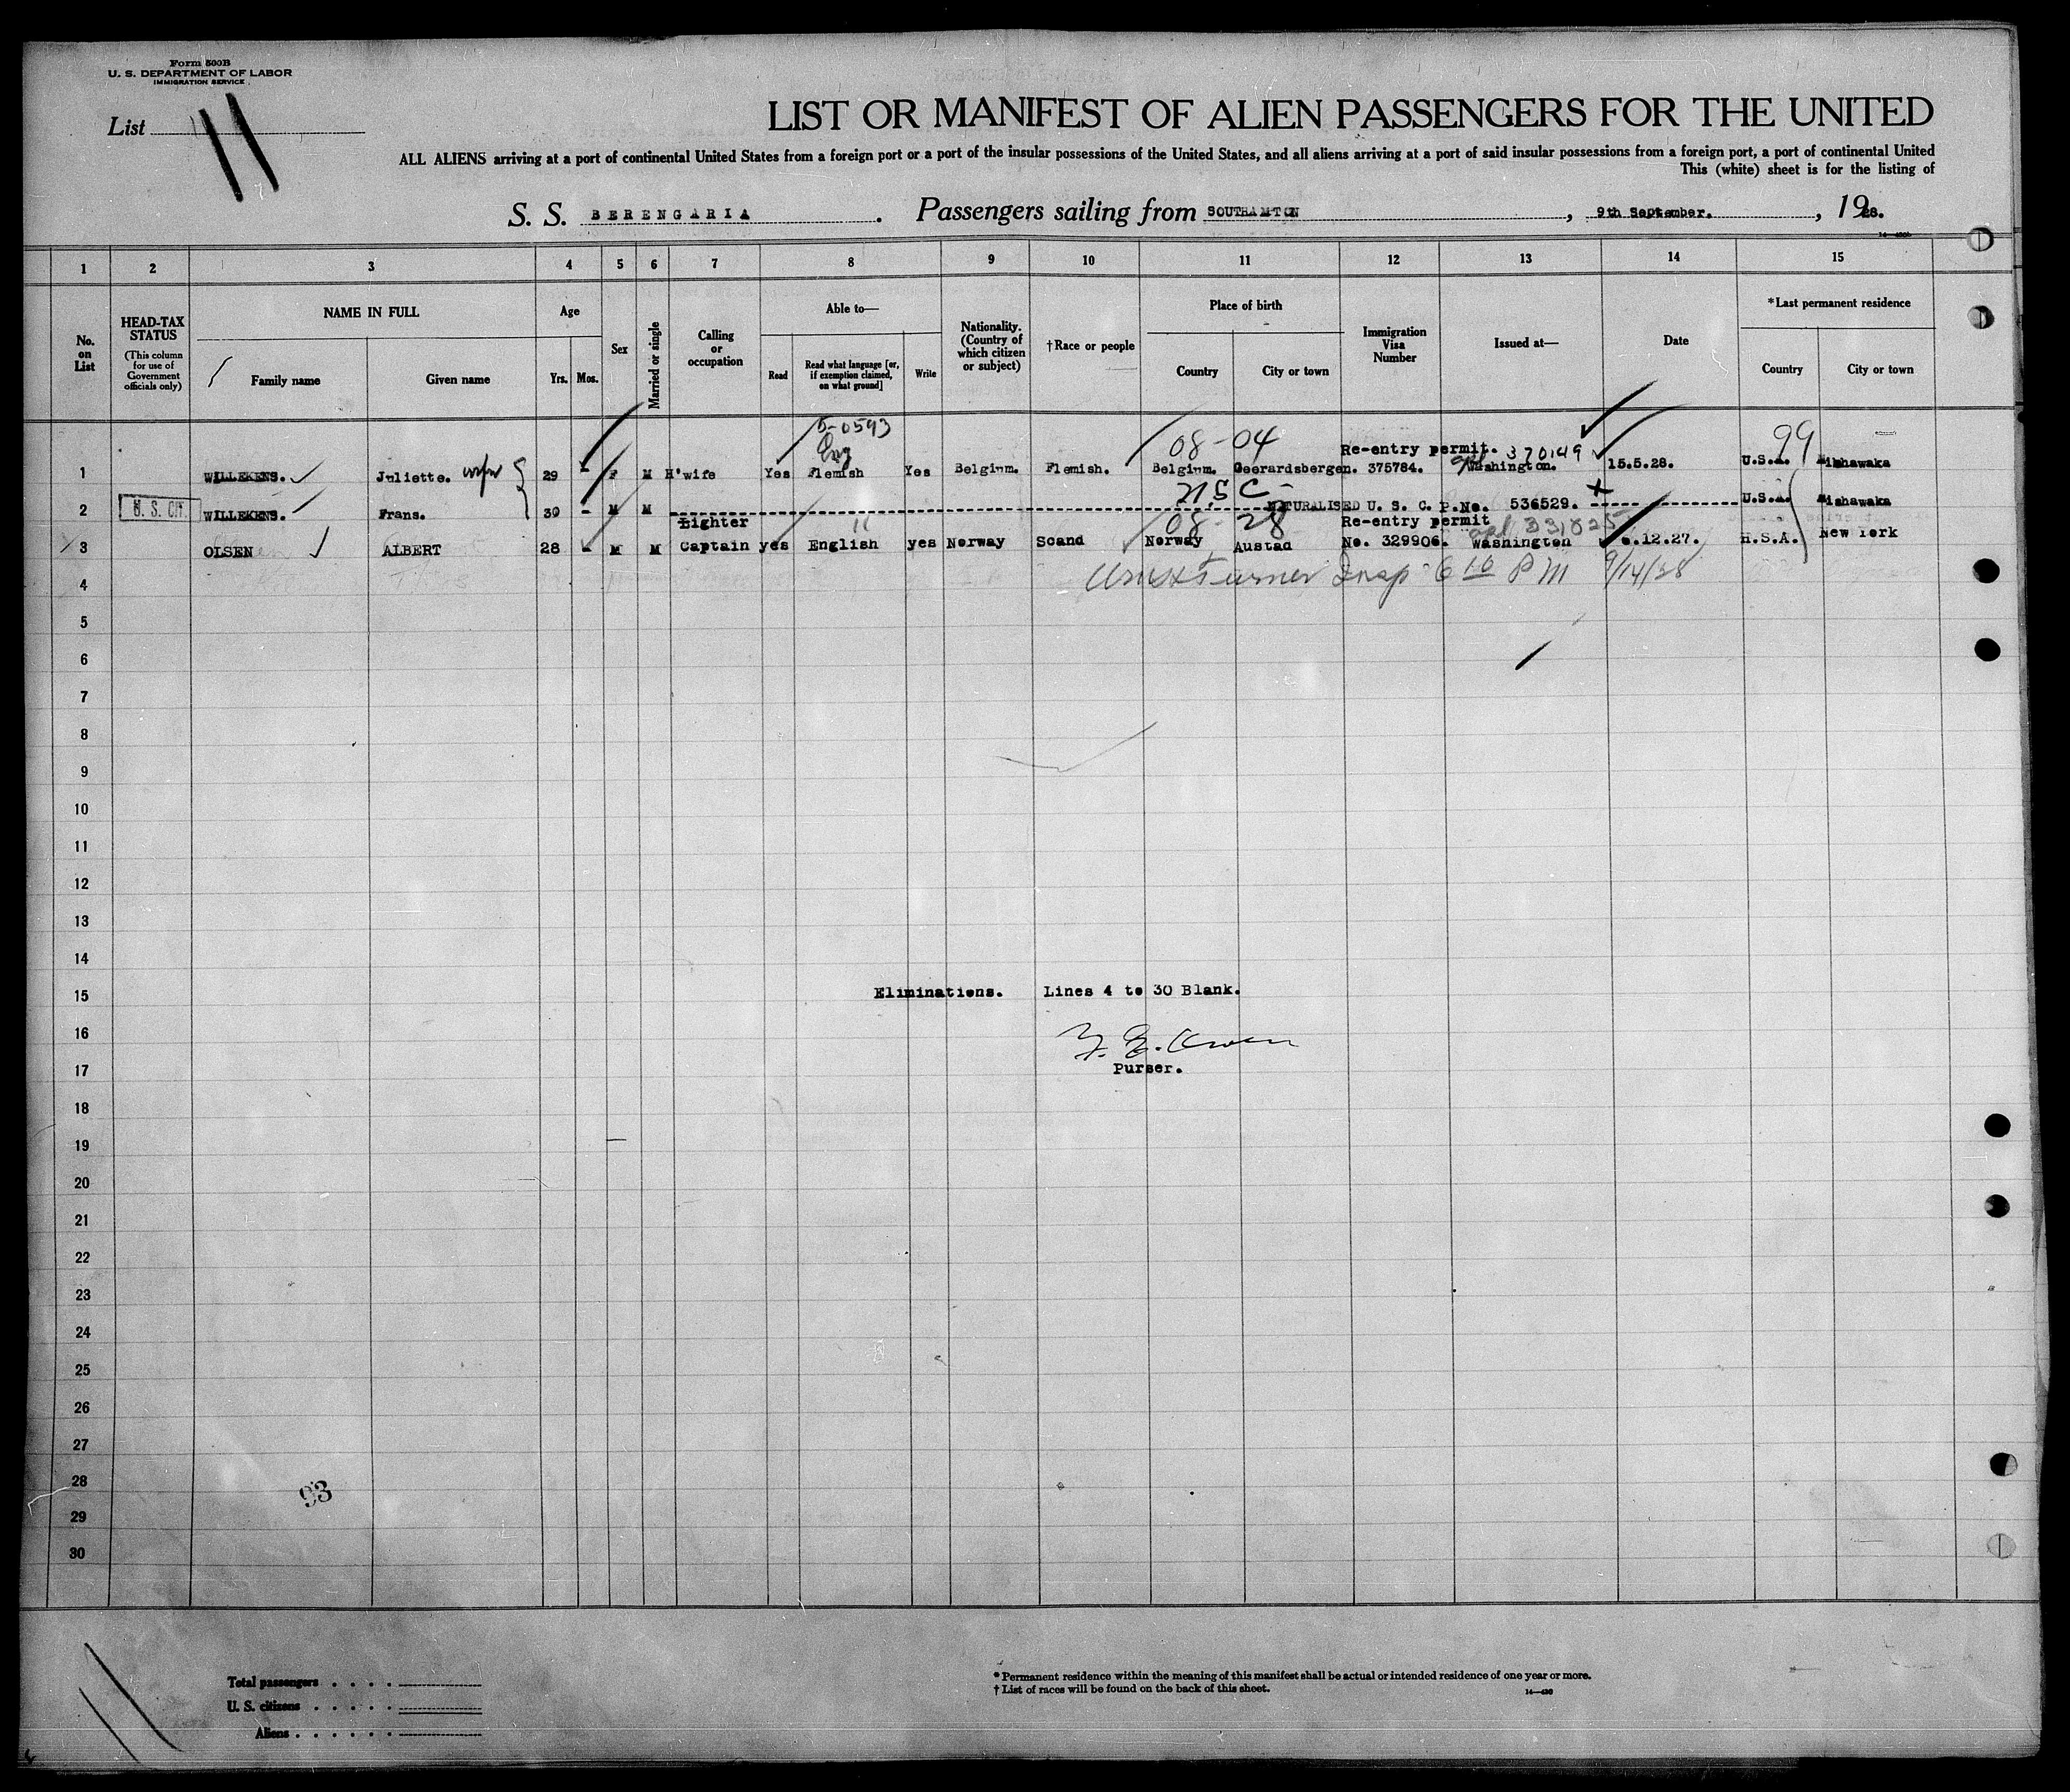 Form 500B
U. S. DEPARTMENT OF LABOR
IMMIGRATION SERVICE
List 11
LIST OR MANIFEST OF ALIEN PASSENGERS FOR THE UNITED
ALL ALIENS arriving at a port of continental United States from a foreign port or a port of the insular possessions of the United States, and all aliens arriving at a port of said insular possessions from a foreign port, a port of continental United
This (white) sheet is for the listing of
S. S. BERENGARIA . Passengers sailing from SOUTHAMTON , 9th September. , 1928.
1 2 3 4 5 6 7 8 9 10 11 12 13 14 15
No. on List
HEAD-TAX STATUS
(This column for use of Government officials only)
NAME IN FULL
Family name
Given name
Age
Yrs. Mos.
Sex
Married or single
Calling or occupation
Able to—
Read
Read what language [or, if exemption claimed, on what ground]
Write
Nationality. (Country of which citizen or subject)
†Race or people
Place of birth
Country
City or town
Immigration Visa Number
Issued at—
Date
*Last permanent residence
Country
City or town
5-0593
Eng 08-04 Re-entry permit. 370149 99
1 WILLEKENS. Juliette. wife 29 - F M H'wife Yes Flemish Yes Belgium. Flemish. Belgium. Geerardsbergen. 375784. Washington. 15.5.28. U.S.A. Mishawaka
U.S.C-
2 U. S. CIT. WILLEKENS. Frans. 30 - M M NATURALISED U. S. C. P.No. 536529. U.S.A. Mishawaka
Lighter 11 08-28 Re-entry permit
3 OLSEN ALBERT 28 - M M Captain yes English yes Norway Scand Norway Austad No. 329906. Washington .12.27. H.S.A. New York
4 Turner Insp 6 10 PM 9/14/28
5
6
7
8
9
10
11
12
13
14
15 Eliminations. Lines 4 to 30 Blank.
16
17 Purser.
18
19
20
21
22
23
24
25
26
27
28 93
29
30
Total passengers . . . .
U. S. citizens . . . . .
Aliens . . . . . .
* Permanent residence within the meaning of this manifest shall be actual or intended residence of one year or more.
† List of races will be found on the back of this sheet.
14—430